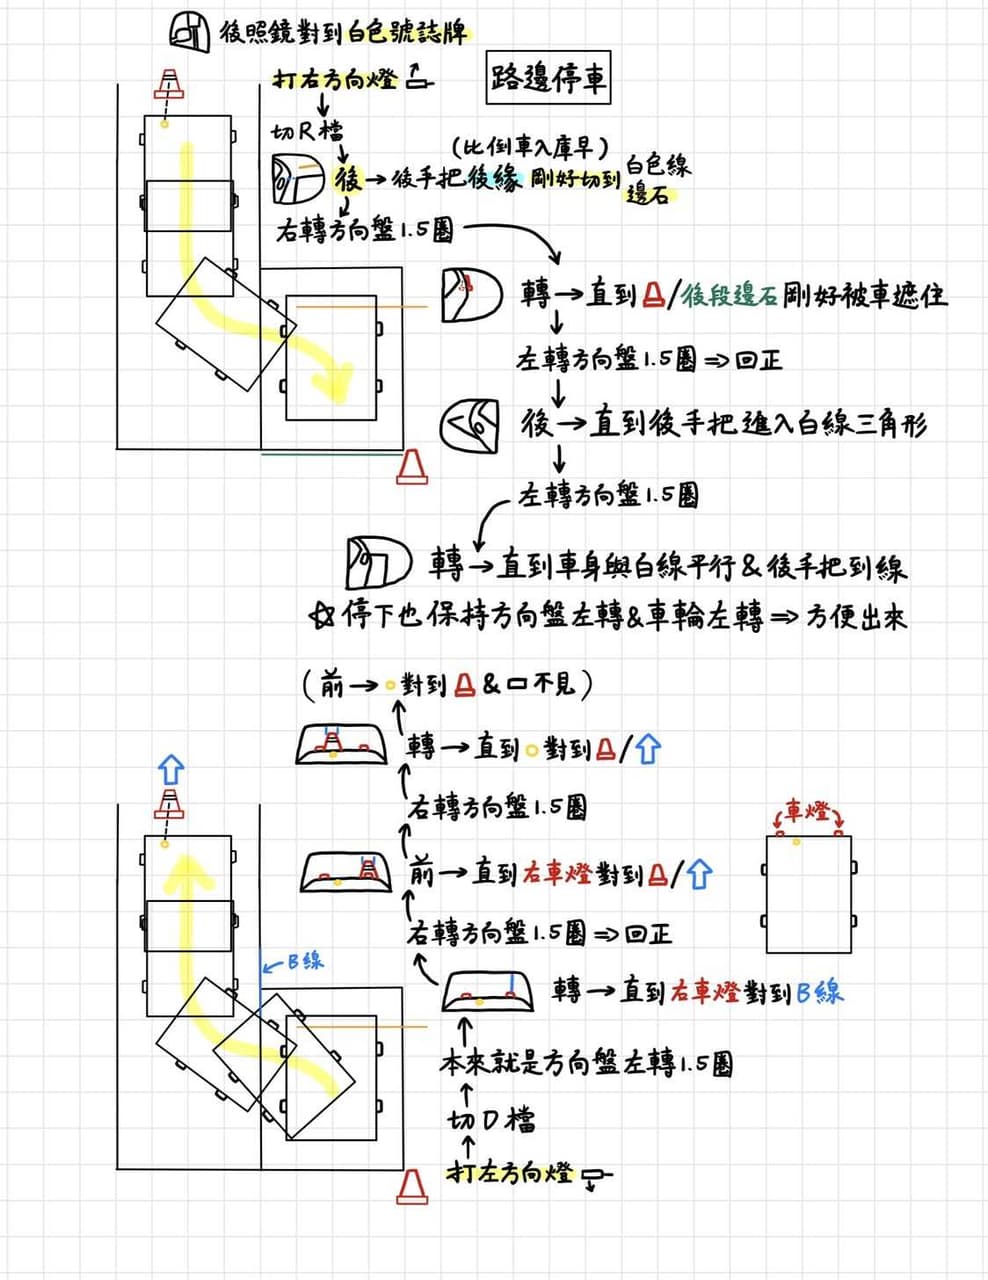 後照鏡對到白色號誌牌
路邊停車
打右方向燈
切R檔
(比倒車入庫早)
後→後手把後緣 剛好切到 白色線
邊石
右轉方向盤1.5圈
轉→直到 /後段邊石剛好被車遮住
左轉方向盤1.5圈⇒回正
後→直到後手把進入白線三角形
左轉方向盤1.5圈
轉→直到車身與白線平行&後手把到線
☆停下也保持方向盤左轉&車輪左轉⇒方便出來
(前→ 對到 & 不見)
轉→直到 對到 /
右轉方向盤1.5圈
車燈
前→直到右車燈對到 /
右轉方向盤1.5圈⇒回正
B線
轉→直到右車燈對到B線
本來就是方向盤左轉1.5圈
切D檔
打左方向燈